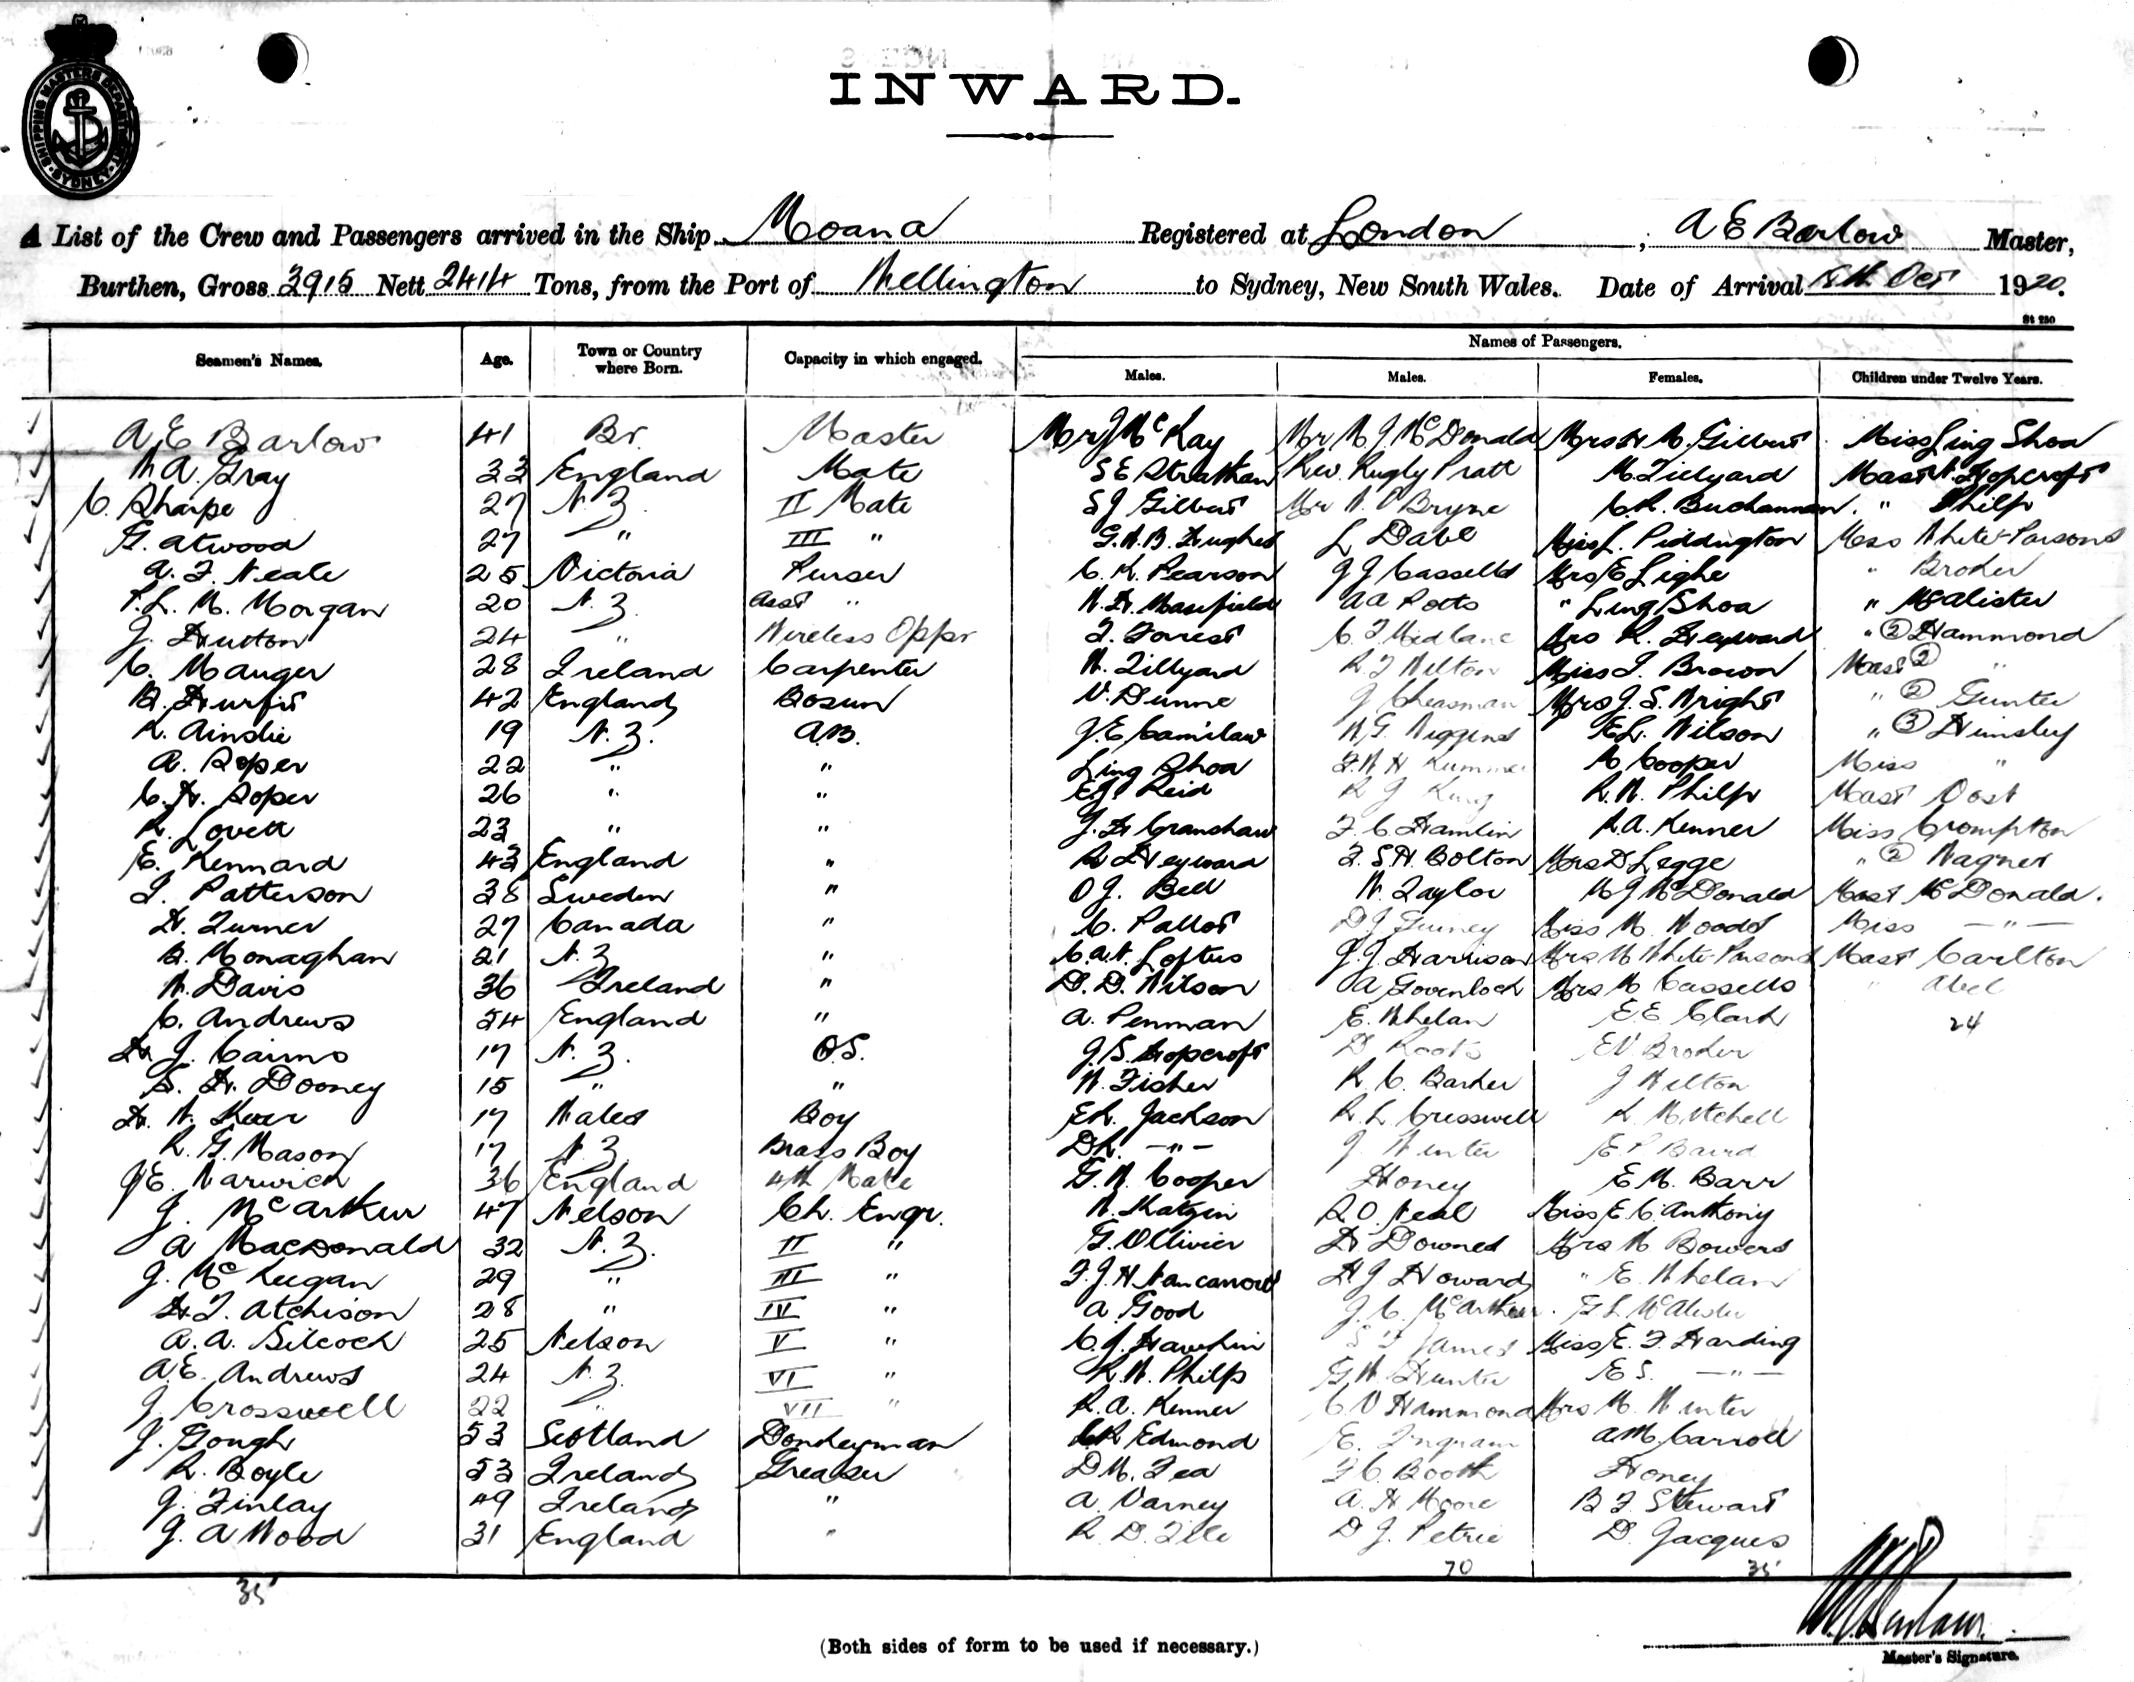 SHIPPING MASTERS DEPARTMENT SYDNEY
INWARD.
A List of the Crew and Passengers arrived in the Ship Moana Registered at London ; A E Barlow Master,
Burthen, Gross 3915 Nett 2414 Tons, from the Port of Wellington to Sydney, New South Wales. Date of Arrival Oct 1920.
St 250
Seamen's Names. Age. Town or Country where Born. Capacity in which engaged. Names of Passengers.
Males. Males. Females. Children under Twelve Years.
A E Barlow 41 Br. Master Mr J McKay Mr M J McDonald Mrs H M Gilbert Miss Ling Shoa
W A. Gray 33 England Mate S E Strathan Rev. Rugby Pratt M Tillyard Mast Hopcroft
C. Sharpe 27 N.Z. II Mate S J Gilbert Mr W. O'Bryne C. R. Buchannan " Philp
G. Atwood 27 " III " G. W. B. Hughes L Dave Miss L. Piddington Miss White-Parsons
A. F. Neale 25 Victoria Purser C. K. Pearson J J Cassells Mrs E Lighe " Broker
P. L. M. Morgan 20 N.Z. Asst " W. H. Masefield A A Potts " Ling Shoa " McAlister
J. Hutton 24 " Wireless Oppr F. Forrest C. F Midlane Mrs R. Heyward " (2) Hammond
C. Mauger 28 Ireland Carpenter W. Tillyard R F Wilton Miss I. Brown Mast (2) "
B. Hurfit 42 England Bosun V. Dunne J Cheasman Mrs J. S. Wright " (2) Gunter
R. Ainslie 19 N.Z. A.B. J. E W G Wiggins E L. Wilson " (3) Himsley
A. Roper 22 " " Ling Shoa F. W H M Cooper Miss "
C. H. Roper 26 " " E J Reid R J King R. W. Philp Mast Oost
R. Lovett 23 " " J. H Cranshaw F. C. Hamlin R. A. Kenner Miss Crompton
E. Kennard 43 England " R Heyward F. S. H. Bolton Mrs D Legge " (2) Wagner
I. Patterson 38 Sweden " O J. Bell W. Taylor M J McDonald Mast McDonald.
H. Turner 27 Canada " C. Pallot D J Guiney Miss M. Woods Miss — " —
B. Monaghan 21 N.Z. " C. A. N. Loftus J. J. Harrison Mrs W White-Parsons Mast Carlton
W. Davis 36 Ireland " D. D. Wilson A Govenlock Mrs M Cassells " Abel
C. Andrews 54 England " A. Penman E. Whelan E. E Clark 24
H. J. Cairns 17 N.Z. O.S. J. S. Hopcroft D Roots E V Broker
S. H. Dooney 15 " " W. Fisher R. C. Barker J Wilton
H. W. Kerr 17 Wales Boy E R. Jackson R. L Cresswell K Mitchell
R. G. Mason 17 N.Z. Brass Boy D R. — " — J. Winter E P Baird
J E. Warwick 36 England 4th Mate G. W. Cooper Honey E M. Barr
J. McArthur 47 Nelson Ch. Engr. W. Katzin R O. Neal Miss E. C. Anthony
A MacDonald 32 N.Z. II " G. Ollivier H Downes Mrs M Bowers
J. McKeegan 29 " III " F. J. H Nancarrow H. J Howard " E. Whelan
H. F. Atchison 28 " IV " A. Good J. C. McArthur. G L McAlister
A. A. Silcock 25 Nelson V " C. J. Hawkin S F James Miss E. F. Harding
A. E. Andrews 24 N.Z. VI " R. W. Philp G W. Hunter E S. — " —
J. Crosswell 22 " VII " R. A. Kenner C V Hammond Mrs M. Winter
J. Gough 53 Scotland Donkeyman C R Edmond E. Ingram A M. Carroll
R. Boyle 53 Ireland Greaser D M. Fea F C. Booth Honey
J. Finlay 49 Ireland " A. Varney A. H Moore B F Stewart
J. A Wood 31 England " R D. Tile D J. Petrie D. Jacques
35 70 35
(Both sides of form to be used if necessary.)
Master's Signature.